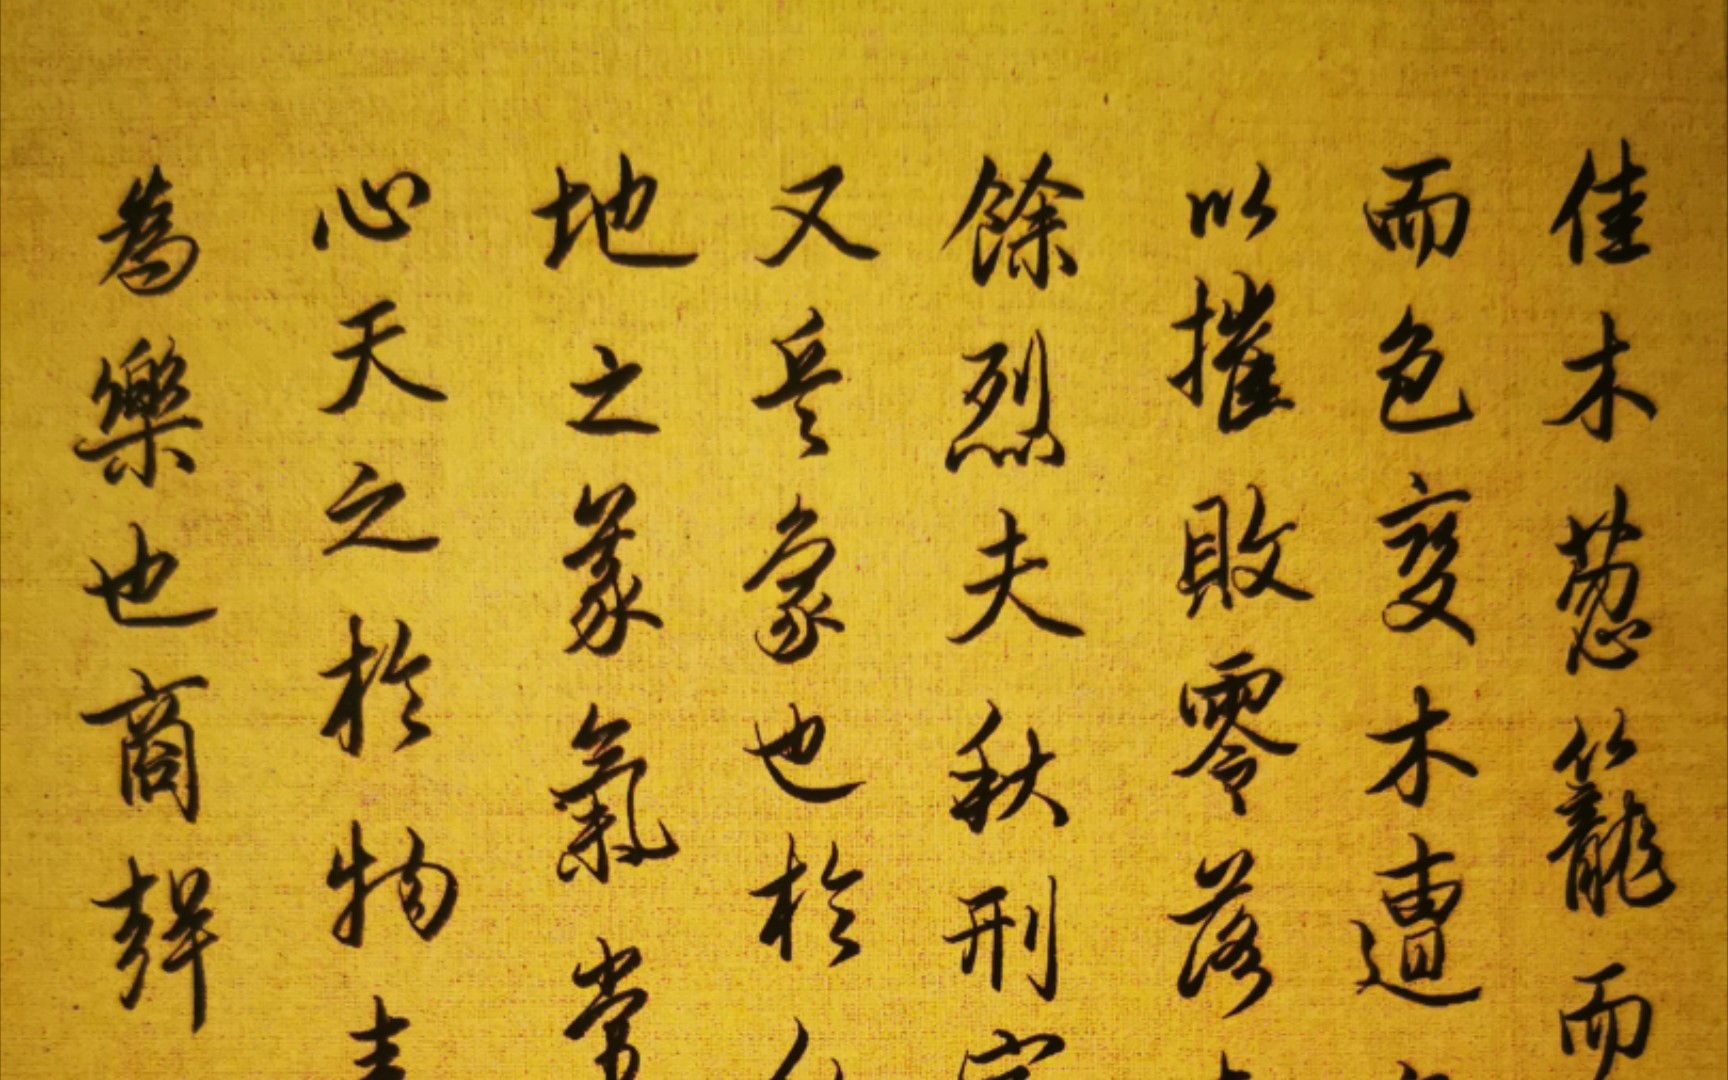 佳木葱籠而
而色變木遭
以摧敗零落
餘烈夫秋刑
又兵象也於
地之義氣常
心天之於物
為樂也商聲